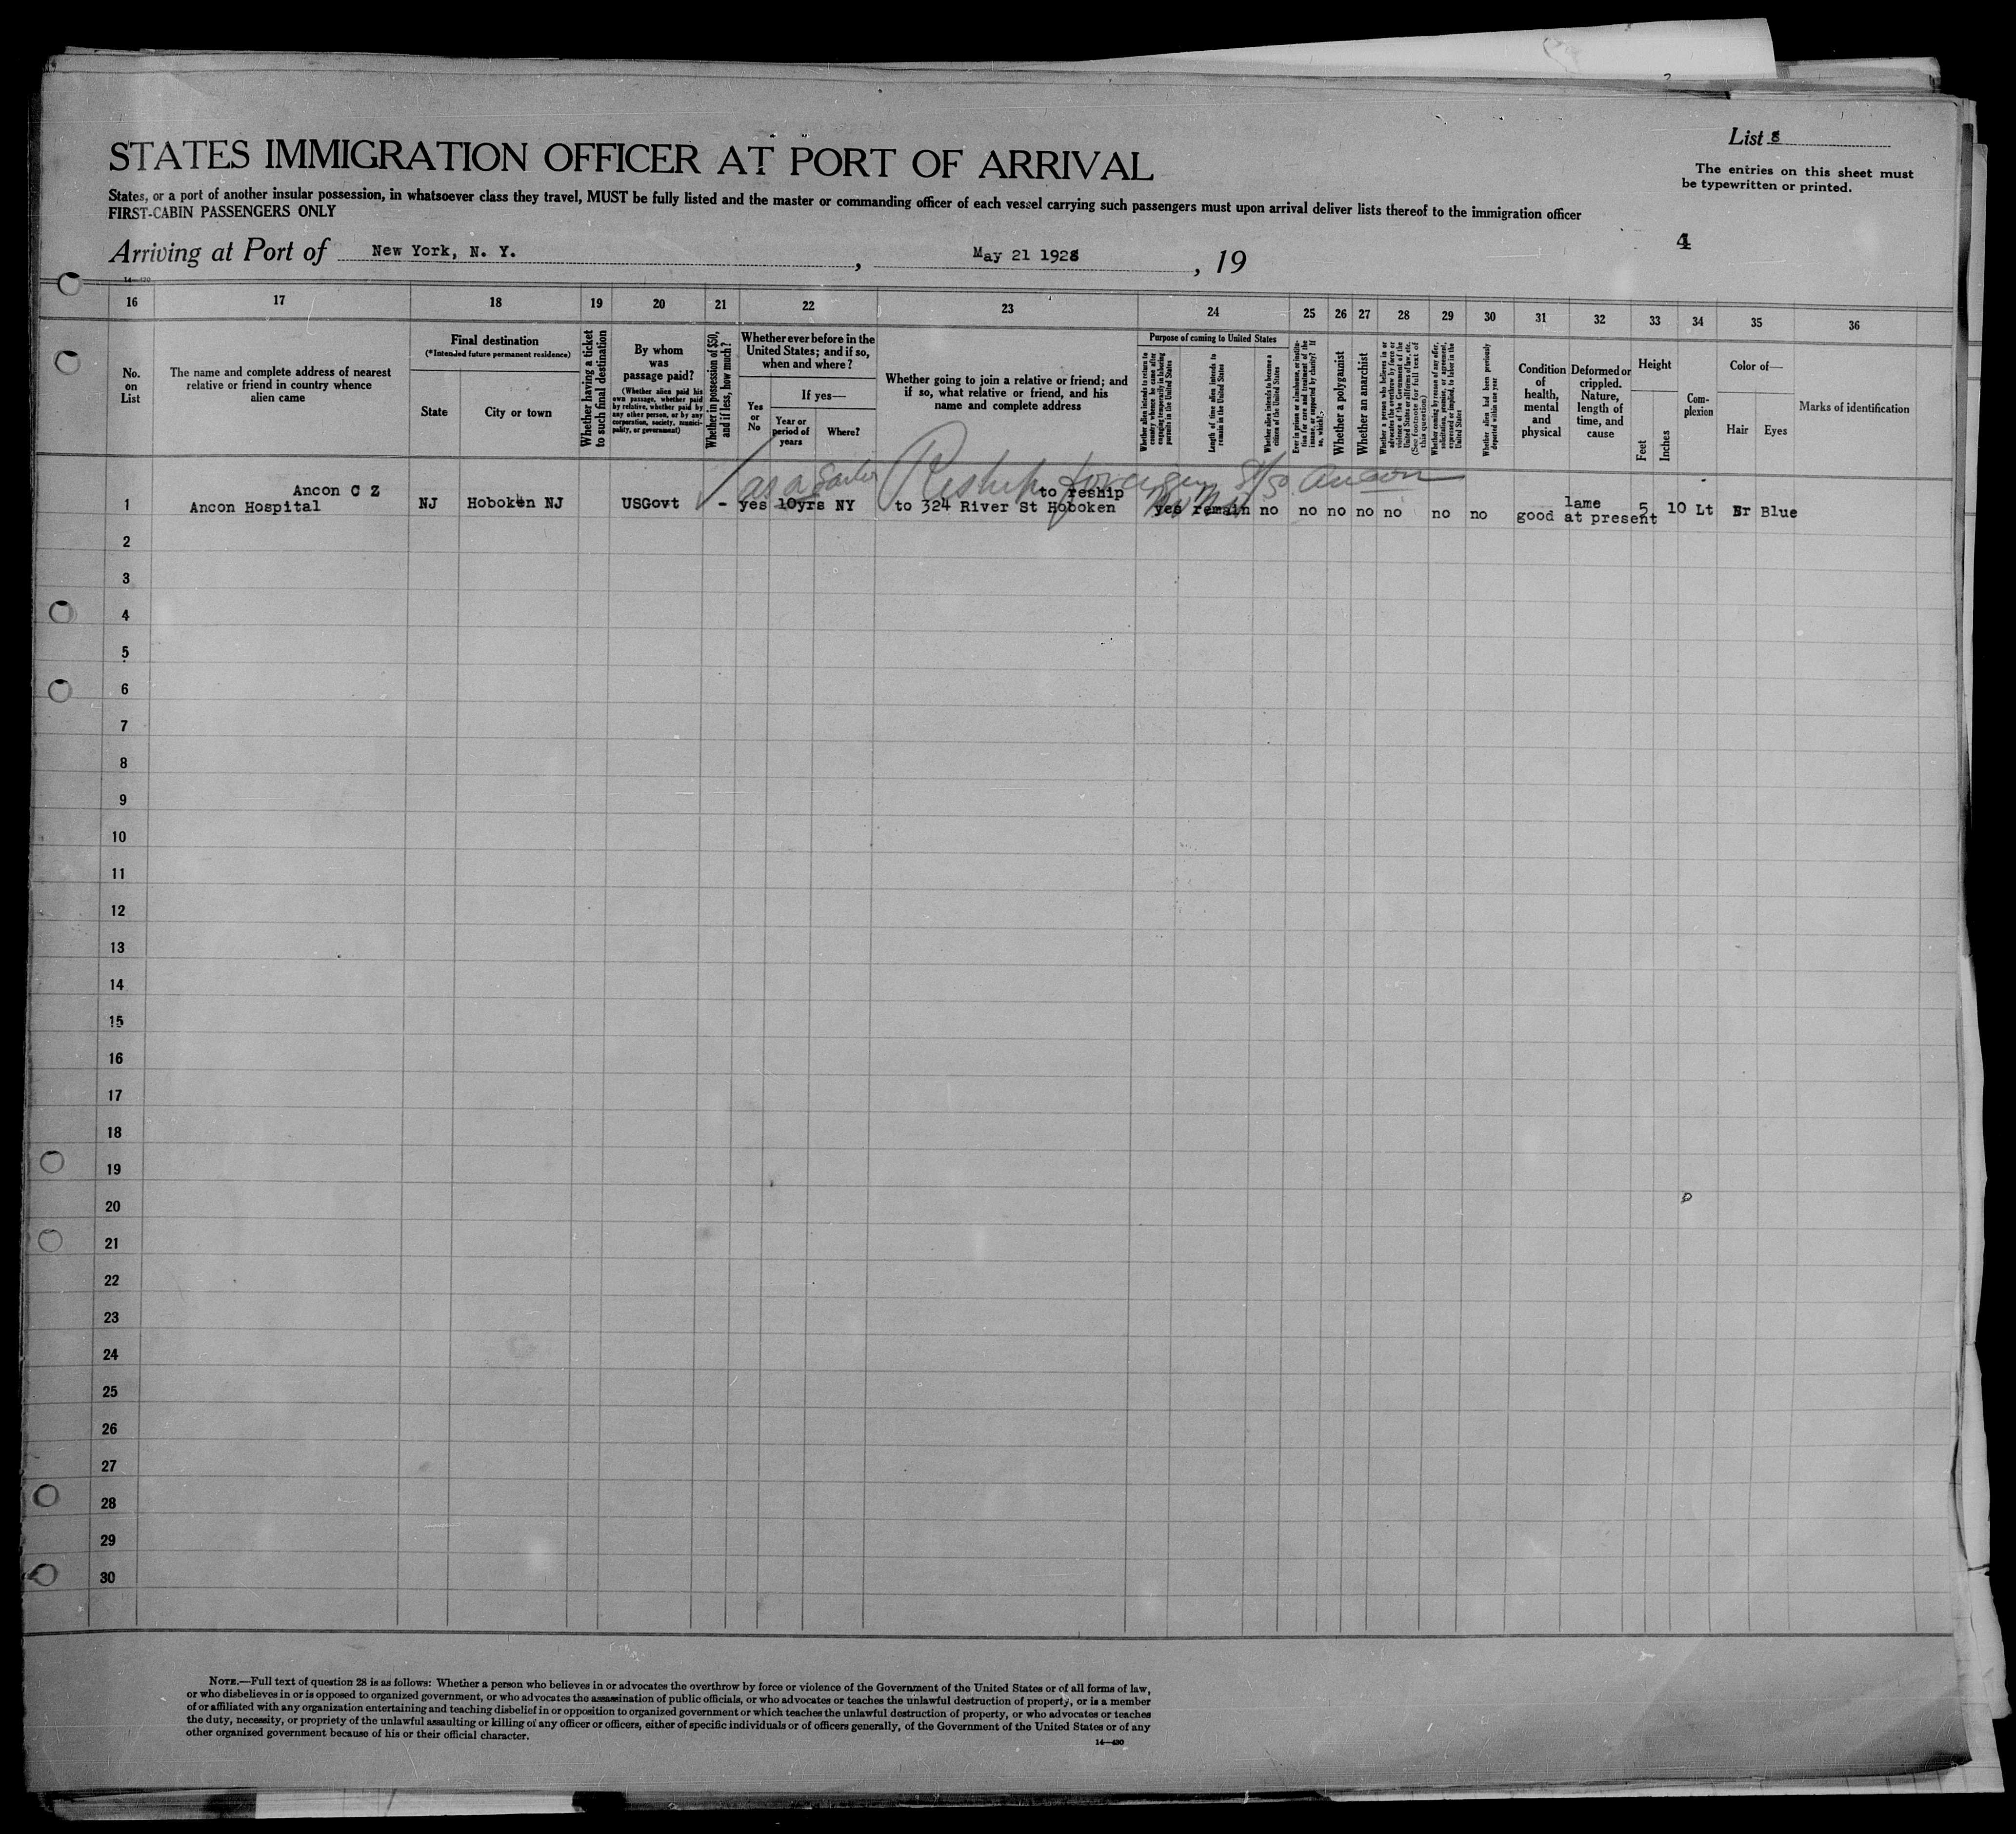 List 8
The entries on this sheet must
be typewritten or printed.
STATES IMMIGRATION OFFICER AT PORT OF ARRIVAL
States, or a port of another insular possession, in whatsoever class they travel, MUST be fully listed and the master or commanding officer of each vessel carrying such passengers must upon arrival deliver lists thereof to the immigration officer
FIRST-CABIN PASSENGERS ONLY
4
Arriving at Port of New York, N. Y. , May 21 1928 , 19
14—430
16 17 18 19 20 21 22 23 24 25 26 27 28 29 30 31 32 33 34 35 36
No.
on
List
The name and complete address of nearest
relative or friend in country whence
alien came
Final destination
(*Intended future permanent residence)
State
City or town
Whether having a ticket
to such final destination
By whom
was
passage paid?
(Whether alien paid his
own passage, whether paid
by relative, whether paid by
any other person, or by any
corporation, society, munici-
pality, or government)
Whether in possession of $50,
and if less, how much?
Whether ever before in the
United States; and if so,
when and where?
Yes
or
No
If yes—
Year or
period of
years
Where?
Whether going to join a relative or friend; and
if so, what relative or friend, and his
name and complete address
Purpose of coming to United States
Whether alien intends to return to
country whence he came after
engaging temporarily in laboring
pursuits in the United States
Length of time alien intends to
remain in the United States
Whether alien intends to become a
citizen of the United States
Ever in prison or almshouse, or institu-
tion for care and treatment of the
insane, or supported by charity? If
so, which?
Whether a polygamist
Whether an anarchist
Whether a person who believes in or
advocates the overthrow by force or
violence of the Government of the
United States or all forms of law, etc.
(See footnote for full text of
this question)
Whether coming by reason of any offer,
solicitation, promise, or agreement,
expressed or implied, to labor in the
United States
Whether alien had been previously
deported within one year
Condition
of
health,
mental
and
physical
Deformed or
crippled.
Nature,
length of
time, and
cause
Height
Feet
Inches
Com-
plexion
Color of—
Hair
Eyes
Marks of identification
as a Sailor Reship foreign S/S Ancon
Ancon C Z to reship lame
1 Ancon Hospital NJ Hoboken NJ USGovt - yes 10yrs NY to 324 River St Hoboken yes remain no no no no no no no good at present 5 10 Lt Br Blue
2
3
4
5
6
7
8
9
10
11
12
13
14
15
16
17
18
19
20
21
22
23
24
25
26
27
28
29
30
NOTE.—Full text of question 28 is as follows: Whether a person who believes in or advocates the overthrow by force or violence of the Government of the United States or of all forms of law,
or who disbelieves in or is opposed to organized government, or who advocates the assassination of public officials, or who advocates or teaches the unlawful destruction of property, or is a member
of or affiliated with any organization entertaining and teaching disbelief in or opposition to organized government or which teaches the unlawful destruction of property, or who advocates or teaches
the duty, necessity, or propriety of the unlawful assaulting or killing of any officer or officers, either of specific individuals or of officers generally, of the Government of the United States or of any
other organized government because of his or their official character.
14—430